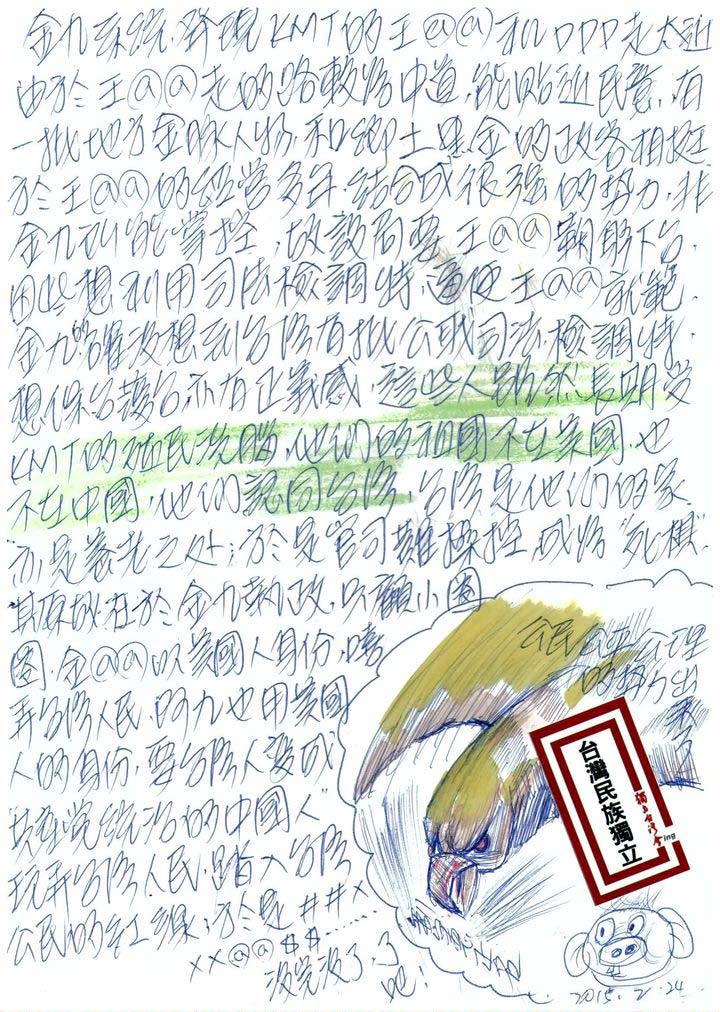 金九系統，發現KMT的王@@和DDD走太近
由於王@@走的路較為中道，能貼近民意，有
一批地方金脈人物，和鄉土黑金的政客相挺
於王@@的經營多年，結合成很強的勢力，非
金九所能掌控，故設局要王@@鞠躬下台，
因此想利用司法檢調特，逼使王@@就範，
金九 沒想到台灣有批公職司法檢調特，
想保台護台，亦有正義感，這些人雖然長期受
KMT的殖民洗腦，他們的祖國不在美國，也
不在中國，他們認同台灣，台灣是他們的家
亦是養老之处；於是官司難操控，成為"死棋"
其原故在於金九執政，只顧小圈
圈，金@@以美國人身份，嘻
弄台灣人民，阿九也用美國
人的身份，要台灣人變成
共產党統治的中國人"
玩弄台灣人民，踏入台灣
公民的紅線，於是##x
xx@@$$......
沒完沒了，了
吔！
公民公平公理
的勢力出
來了
台灣民族獨立
ing
2015.2.24.